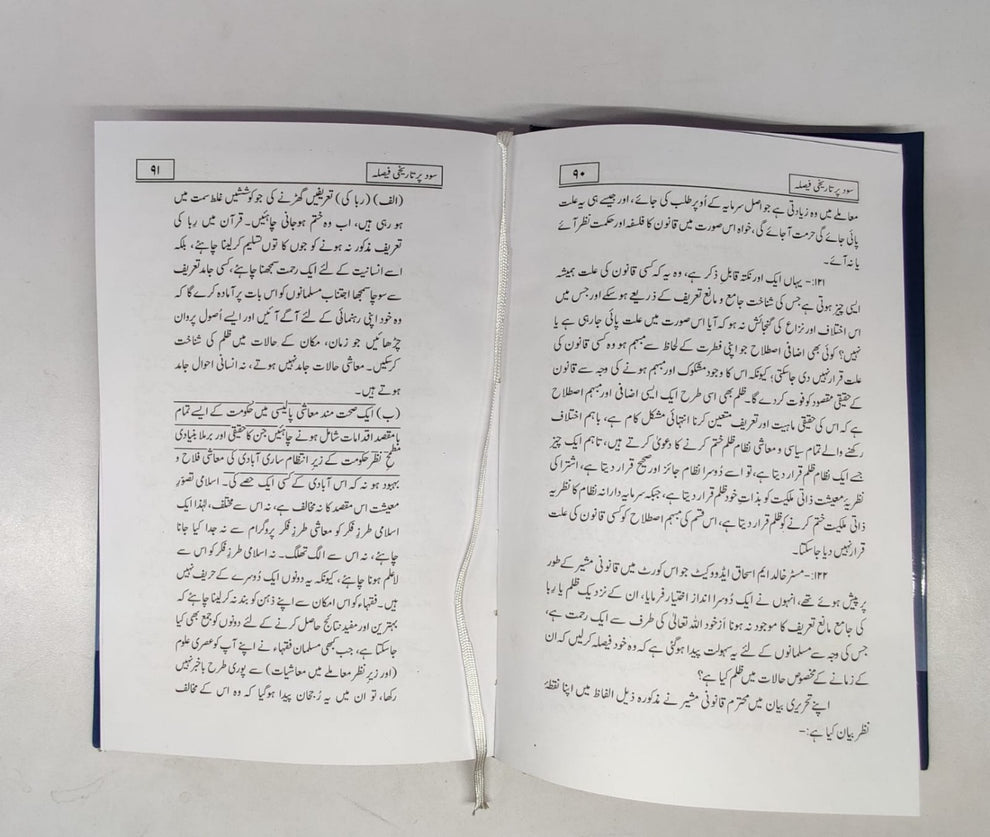 سود پر تاریخی فیصلہ
۹۰
معاملے میں وہ زیادتی ہے جو اصل سرمایہ کے اُوپر طلب کی جائے، اور جیسے ہی یہ علت
پائی جائے گی حرمت آجائے گی، خواہ اس صورت میں قانون کا فلسفہ اور حکمت نظر آئے
یا نہ آئے۔
۱۲۱:- یہاں ایک اور نکتہ قابلِ ذکر ہے، وہ یہ کہ کسی قانون کی علت ہمیشہ
ایسی چیز ہوتی ہے جس کی شناخت جامع و مانع تعریف کے ذریعے ہوسکے اور جس میں
اس اختلاف اور نزاع کی گنجائش نہ ہو کہ آیا اس صورت میں علت پائی جارہی ہے یا
نہیں؟ کوئی بھی اضافی اصطلاح جو اپنی فطرت کے لحاظ سے مبہم ہو وہ کسی قانون کی
علت قرار نہیں دی جاسکتی؛ کیونکہ اس کا وجود مشکوک اور مبہم ہونے کی وجہ سے قانون
کے حقیقی مقصود کو فوت کردے گا۔ ظلم بھی اسی طرح ایک ایسی اضافی اور مبہم اصطلاح
ہے کہ اس کی حقیقی ماہیت اور تعریف متعین کرنا انتہائی مشکل کام ہے، باہم اختلاف
رکھنے والے تمام سیاسی و معاشی نظام ظلم ختم کرنے کا دعویٰ کرتے ہیں، تاہم ایک چیز
جسے ایک نظام ظلم قرار دیتا ہے، تو اسے دُوسرا نظام جائز اور صحیح قرار دیتا ہے، اشتراکی
نظریۂ معیشت ذاتی ملکیت کو بذاتِ خود ظلم قرار دیتا ہے، جبکہ سرمایہ دارانہ نظام کا نظریہ
ذاتی ملکیت ختم کرنے کو ظلم قرار دیتا ہے، اس قسم کی مبہم اصطلاح کو کسی قانون کی علت
قرار نہیں دیا جاسکتا۔
۱۲۲:- مسٹر خالد ایم اسحاق ایڈووکیٹ جو اس کورٹ میں قانونی مشیر کے طور
پر پیش ہوئے تھے، انہوں نے ایک دُوسرا انداز اختیار فرمایا، ان کے نزدیک ظلم یا ربا
کی جامع مانع تعریف کا موجود نہ ہونا ازخود اللہ تعالیٰ کی طرف سے ایک رحمت ہے،
جس کی وجہ سے مسلمانوں کے لئے یہ سہولت پیدا ہوگئی ہے کہ وہ خود فیصلہ کرلیں کہ ان
کے زمانے کے مخصوص حالات میں ظلم کیا ہے؟
اپنے تحریری بیان میں محترم قانونی مشیر نے مذکورہ ذیل الفاظ میں اپنا نقطۂ
نظر بیان کیا ہے:-
سود پر تاریخی فیصلہ
۹۱
(الف) (ربا کی) تعریفیں گھڑنے کی جو کوششیں غلط سمت میں
ہو رہی ہیں، اب وہ ختم ہوجانی چاہئیں۔ قرآن میں رِبا کی
تعریف مذکور نہ ہونے کو جوں کا توں تسلیم کرلینا چاہئے، بلکہ
اسے انسانیت کے لئے ایک رحمت سمجھنا چاہئے، کسی جامد تعریف
سے سوچا سمجھا اجتناب مسلمانوں کو اس بات پر آمادہ کرے گا کہ
وہ خود اپنی رہنمائی کے لئے آگے آئیں اور ایسے اُصول پروان
چڑھائیں جو زمان، مکان کے حالات میں ظلم کی شناخت
کرسکیں۔ معاشی حالات جامد نہیں ہوتے، نہ انسانی احوال جامد
ہوتے ہیں۔
(ب) ایک صحت مند معاشی پالیسی میں حکومت کے ایسے تمام
بامقصد اقدامات شامل ہونے چاہئیں جن کا حقیقی اور برملا بنیادی
مطمحِ نظر حکومت کے زیرِ انتظام ساری آبادی کی معاشی فلاح و
بہبود ہو نہ کہ اس آبادی کے کسی ایک حصے کی۔ اسلامی تصوّرِ
معیشت اس مقصد کا نہ مخالف ہے، نہ اس سے مختلف، لہٰذا ایک
اسلامی طرزِ فکر کو معاشی طرزِ فکر پروگرام سے نہ جدا کیا جانا
چاہئے، نہ اس سے الگ تھلگ۔ نہ اسلامی طرزِ فکر کو اس سے
لاعلم ہونا چاہئے، کیونکہ یہ دونوں ایک دُوسرے کے حریف نہیں
ہیں۔ فقہاء کو اس امکان سے اپنے ذہن کو بند نہ کرلینا چاہئے کہ
بہترین اور مفید نتائج حاصل کرنے کے لئے دونوں کو جمع بھی کیا
جاسکتا ہے، جب کبھی مسلمان فقہاء نے اپنے آپ کو عصری علوم
(اور زیرِ نظر معاملے میں معاشیات) سے پوری طرح باخبر نہیں
رکھا، تو ان میں یہ رُجحان پیدا ہوگیا کہ وہ اس کے مخالف